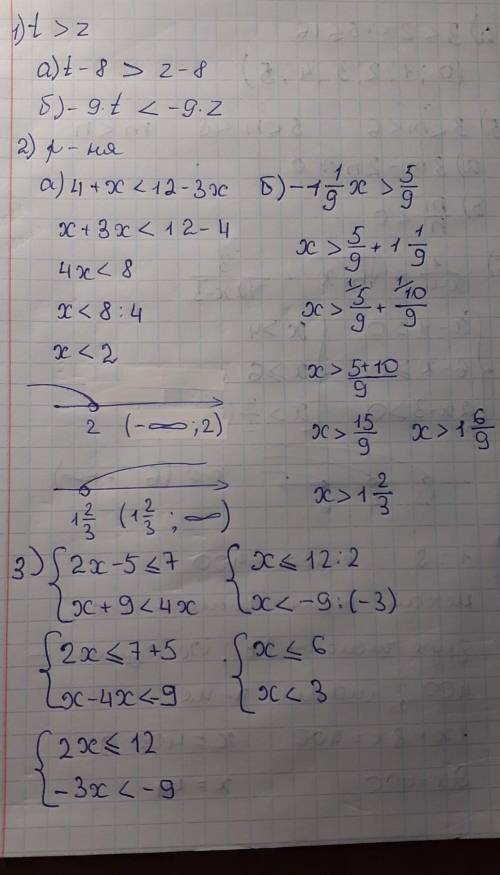 1) t > z
а) t - 8 > z - 8
б) - 9·t < -9·z
2) р - ня
а) 4 + x < 12 - 3x
x + 3x < 12 - 4
4x < 8
x < 8 : 4
x < 2
2 (-∞; 2)
1 2/3 (1 2/3 ; ∞)
б) -1 1/9 x > 5/9
x > 5/9 + 1 1/9
x > 5/9 + 10/9
x > 5+10/9
x > 15/9 x > 1 6/9
x > 1 2/3
3) { 2x - 5 ≤ 7
x + 9 < 4x
{ 2x ≤ 7 + 5
x - 4x < -9
{ 2x ≤ 12
-3x < -9
{ x ≤ 12 : 2
x < -9 : (-3)
{ x ≤ 6
x < 3